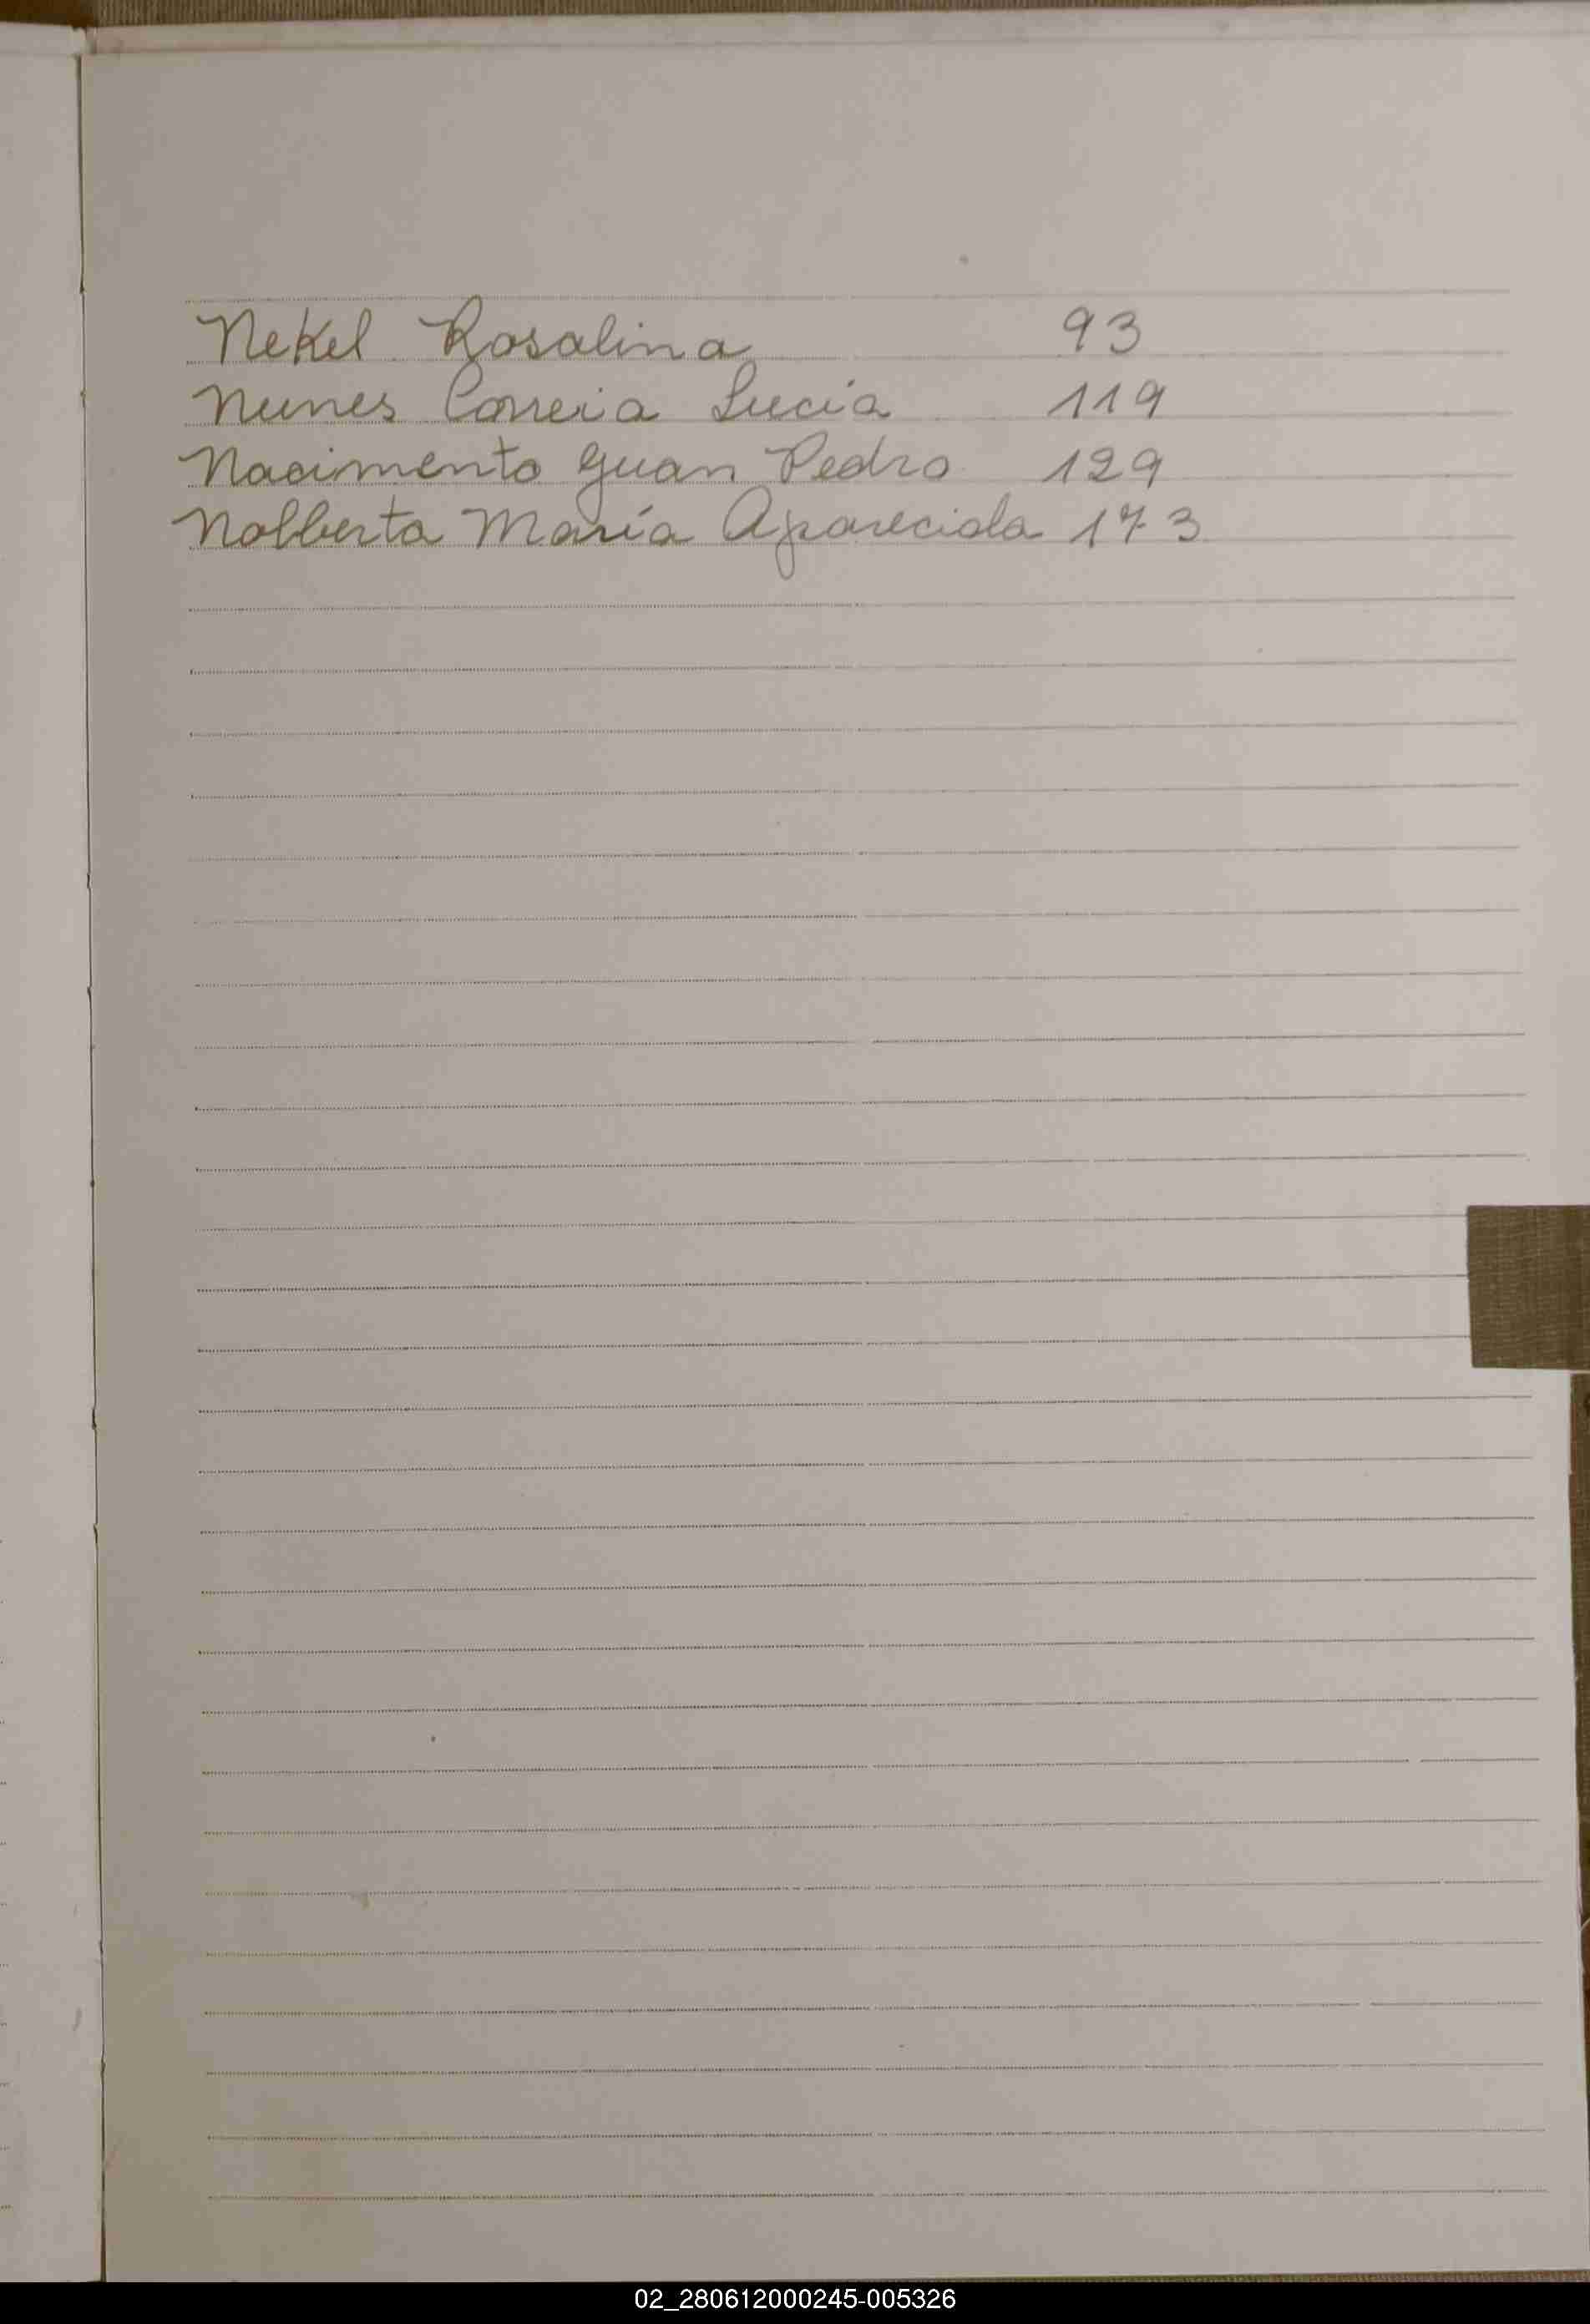 Nekel Rosalina 93
Nunes Correia Lucía 119
Nacimento Juan Pedro 129
Nolberta María Aparecida 173
02_280612000245-005326